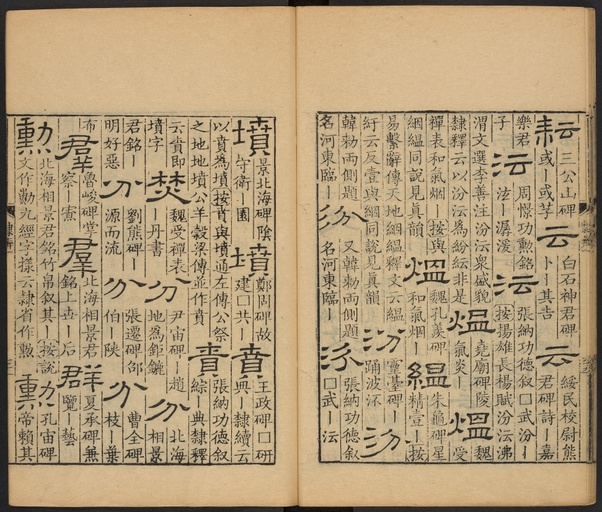 耘 三公山碑或丨或芓 云 白石神君碑卜其吉丨 云 綏民校尉熊君碑詩丨嘉
樂君子 沄 周憬功勳銘泫丨潺湲 沄 張納功德叙囗武汾丨按揚雄長楊賦汾沄沸
渭文選李善注汾沄衆盛貌隸釋云以汾沄為紛紜非是 熅 堯廟碑陵氣炎丨 熅 魏受
禪表和氣烟丨按與絪緼同說見真韻 熅 魏孔羨碑和氣烟丨 緼 朱龜碑星精壹丨按
易繫辭傳天地絪緼釋文云緼紆云反壹與絪同說見真韻 汾 靈臺碑丨踊波 汾
韓勑兩側題名河東臨丨 汾 又韓勑兩側題名河東臨丨 汾 張納功德叙囗武丨沄
墳 景北海碑陰午衛丨園 墳 鄭固碑故建囗共丨 賁 王政碑囗研典丨隸續云
以賁為墳按賁與墳通左傳公祭之地地墳公羊穀梁傳並作賁 賁 張納功德叙綜丨典隸釋
云賁即墳字 焚 魏受禪表丨丹書 分 尹宙碑丨趙地為鉅鑣 分 北海相景
君銘丨明好惡 分 劉熊碑丨源而流 分 張遷碑邵伯丨陝 分 曹全碑枝丨葉
布 羣 魯峻碑掌察丨寮 羣 北海相景君銘上丨后 群 夏承碑兼覽丨藝
勳 北海相景君銘竹帛叙其丨按說文作勳九經字樣云隸省作勲 勲 孔宙碑帝賴其